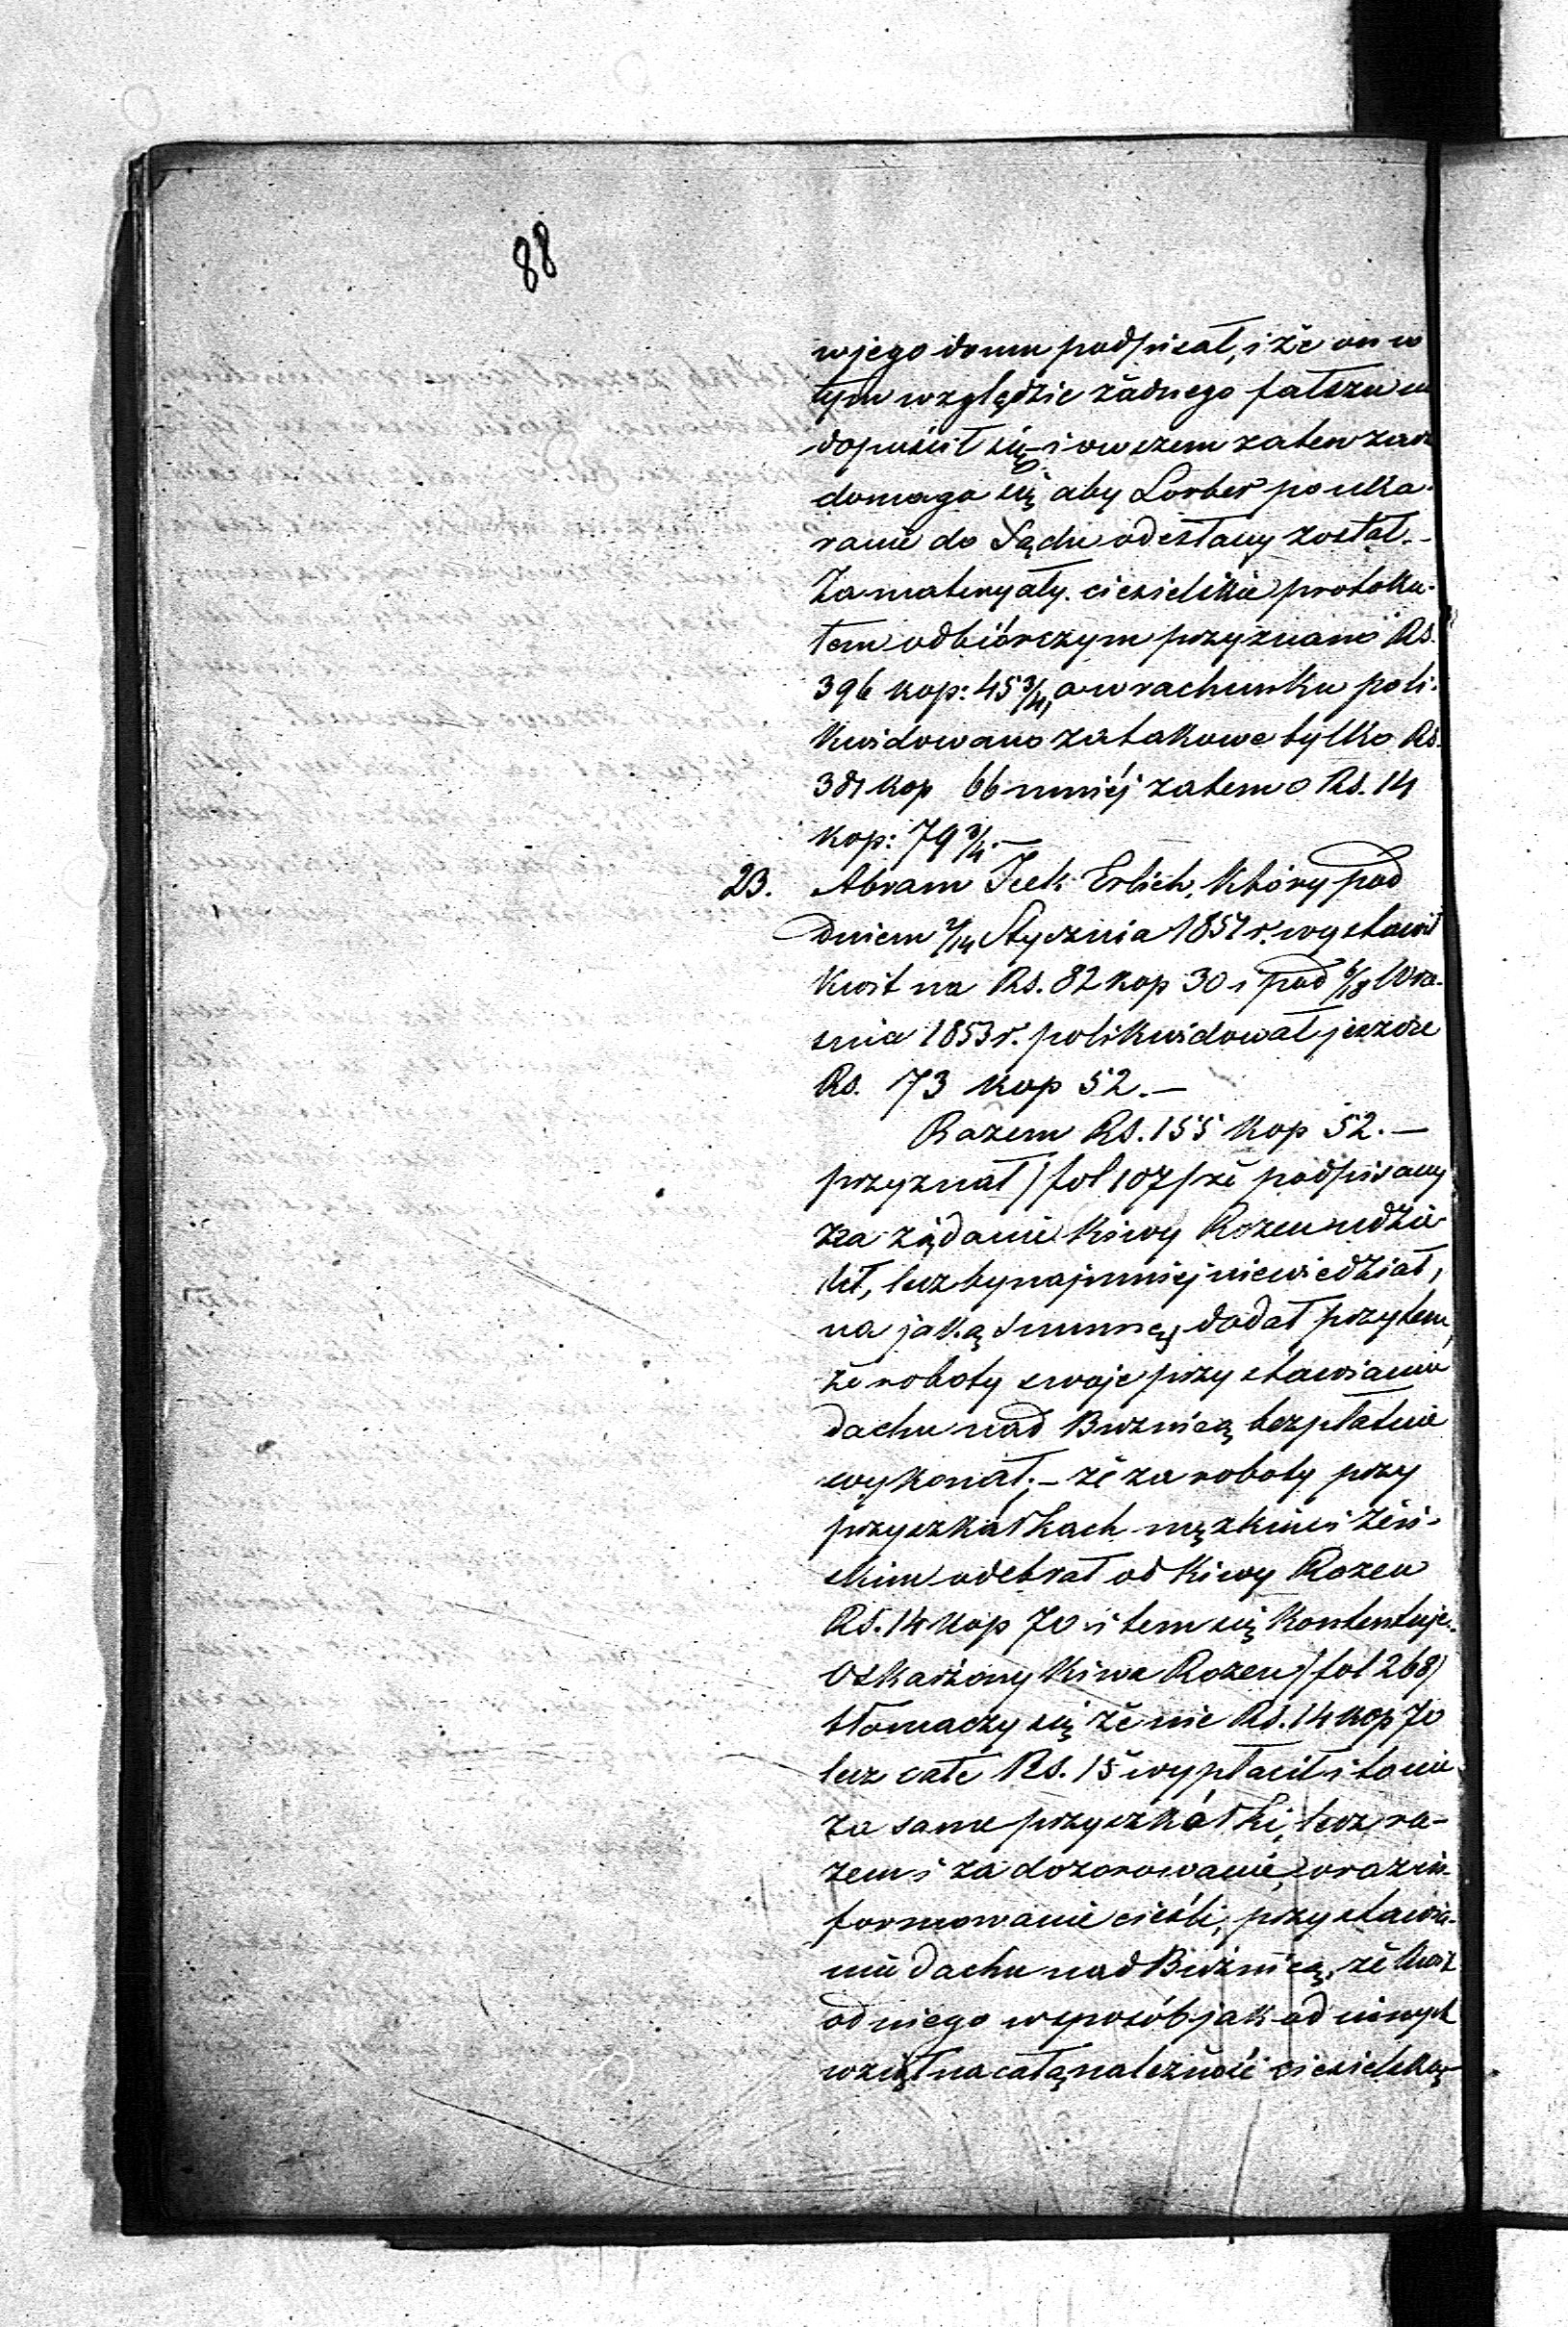 88
w jego domu podpisał, i że on w
tym względzie żadnego fałszu
dopuścił się i owszem zatem
domaga się aby Lorber po uka-
ranie do Sądu odesłany został.-
Za materyały ciesielskie protoku-
łem odbiórczym przyznano Rs.
396 kop: 45 3/4, a w rachunku poli-
kwidowano za takowe tylko Rs.
381 kop 66 mniéj zatem o Rs. 14
kop: 79 3/4.—
23. Abram Icek Erlich, który pod
dniem 2/14 Stycznia 1851 r. wystawił
kwit na Rs. 82 kop 30 i pod 6/18 Wrze-
śnia 1853 r. polikwidował jeszcze
Rs. 73 kop 52.—
Razem Rs. 155 kop 52.—
przyznał /fol 107/ że podpisany
na żądanie Kiwy Rozen udzie-
lił, lecz bynajmniej niewiedział,
na jaką summę, dodał przytem,
że roboty swoje przy stawianiu
dachu nad Bużnicą bezpłatnie
wykonał;- że za roboty przy
przyszkółkach męzkim i żeń-
skim odebrał od Kiwy Rozen
Rs. 14 kop 70 i tem się kontentuje.
Oskarżony Kiwa Rozen /fol 268/
tłomaczy się że nie Rs. 14 kop 70
lecz całe Rs. 15 wypłacił i to nie
za same przyszkółki, lecz ra-
zem i za dozorowanie, oraz in-
formowanie cieśli, przy stawia-
niu dachu nad Bużnicą, że kwit
od niego w sposób jak od innych
wziął na całą należność ciesielską